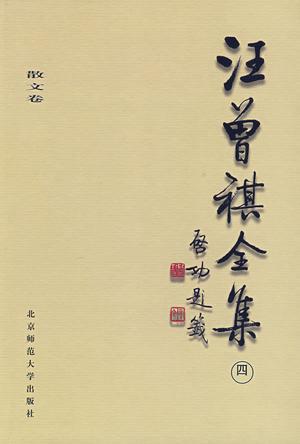 汪曾祺全集
四
啓功題籤
散文卷
北京师范大学出版社